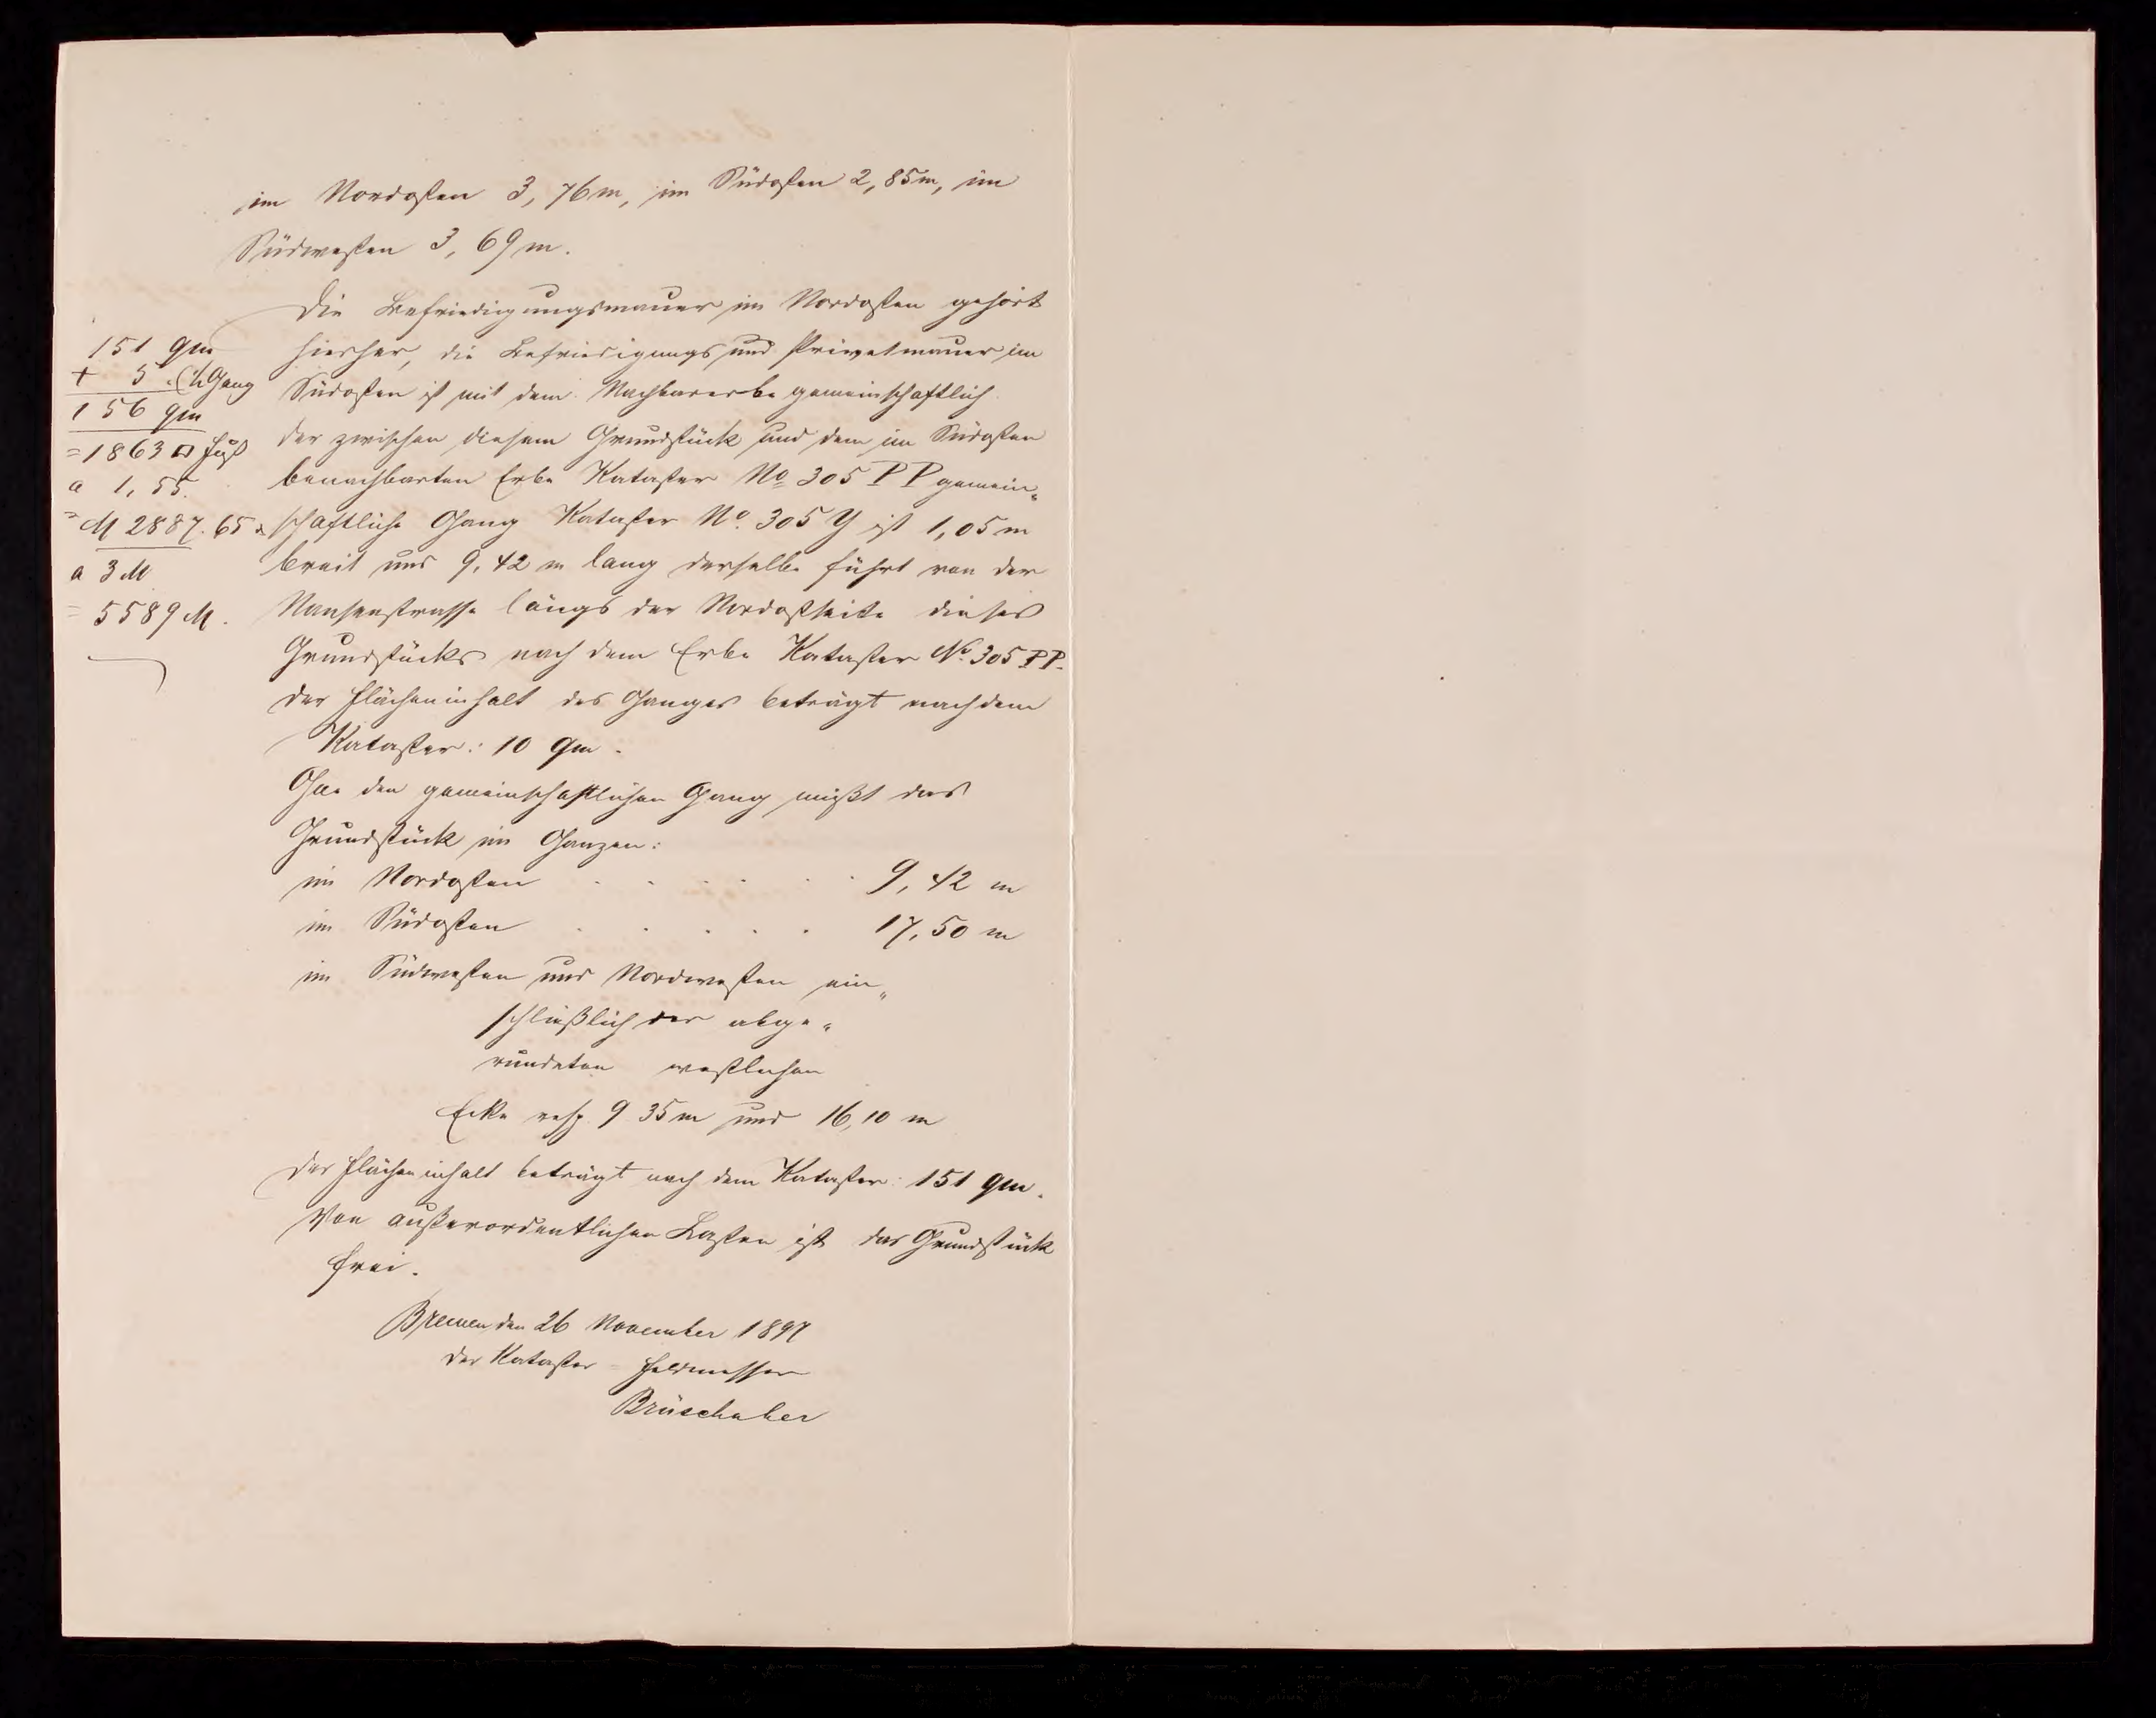 im Nordosten 3,76m, im Südosten 2,85m, im
Südwesten 3,69m.
Die Befriedigungsmauer im Nordosten gehört
hierher, die Befriedigungs und Privetmauer im
Südosten ist mit dem Nachbarerbe gemeinschaftlich.
Der zwischen diesem Grundstück und dem im Südosten
benachbarten Erbe Kataster No 305 PP gemein„
schaftliche Gang Kataster No. 305 Y ist 1,05 m
breit und 9,42 m lang derselbe führt von der
Nansenstrasse längs der Nordostseite dieses
Grundstücks nach dem Erbe Kataster No. 305 PP.
Der Flächeninhalt des Ganges beträgt nach dem
Kataster: 10 qm.
den gemeinschaftlichen Gang mißt das
Grundstück im Ganzen:
im Nordosten . . . . . 9,42 m
im Südosten . . . . . 17,50 m
im Südwesten und Nordwesten ein„
schließlich der abge„
rundeten westlichen
Ecke resp. 9 35 m und 16,10 m
Der Flächeninhalt beträgt nach dem Kataster: 151 qm.
Von außerordentlichen Lasten ist das Grundstück
frei.
Bremen, den 26 November 1897
Der Kataster = Feldmesser
Brüschaber
151 qm
+ 5 " (½ Gang
156 qm
= 1863 □ Fuß
a 1,55.
= M 2887.65
a 3 M
= 5589 M.